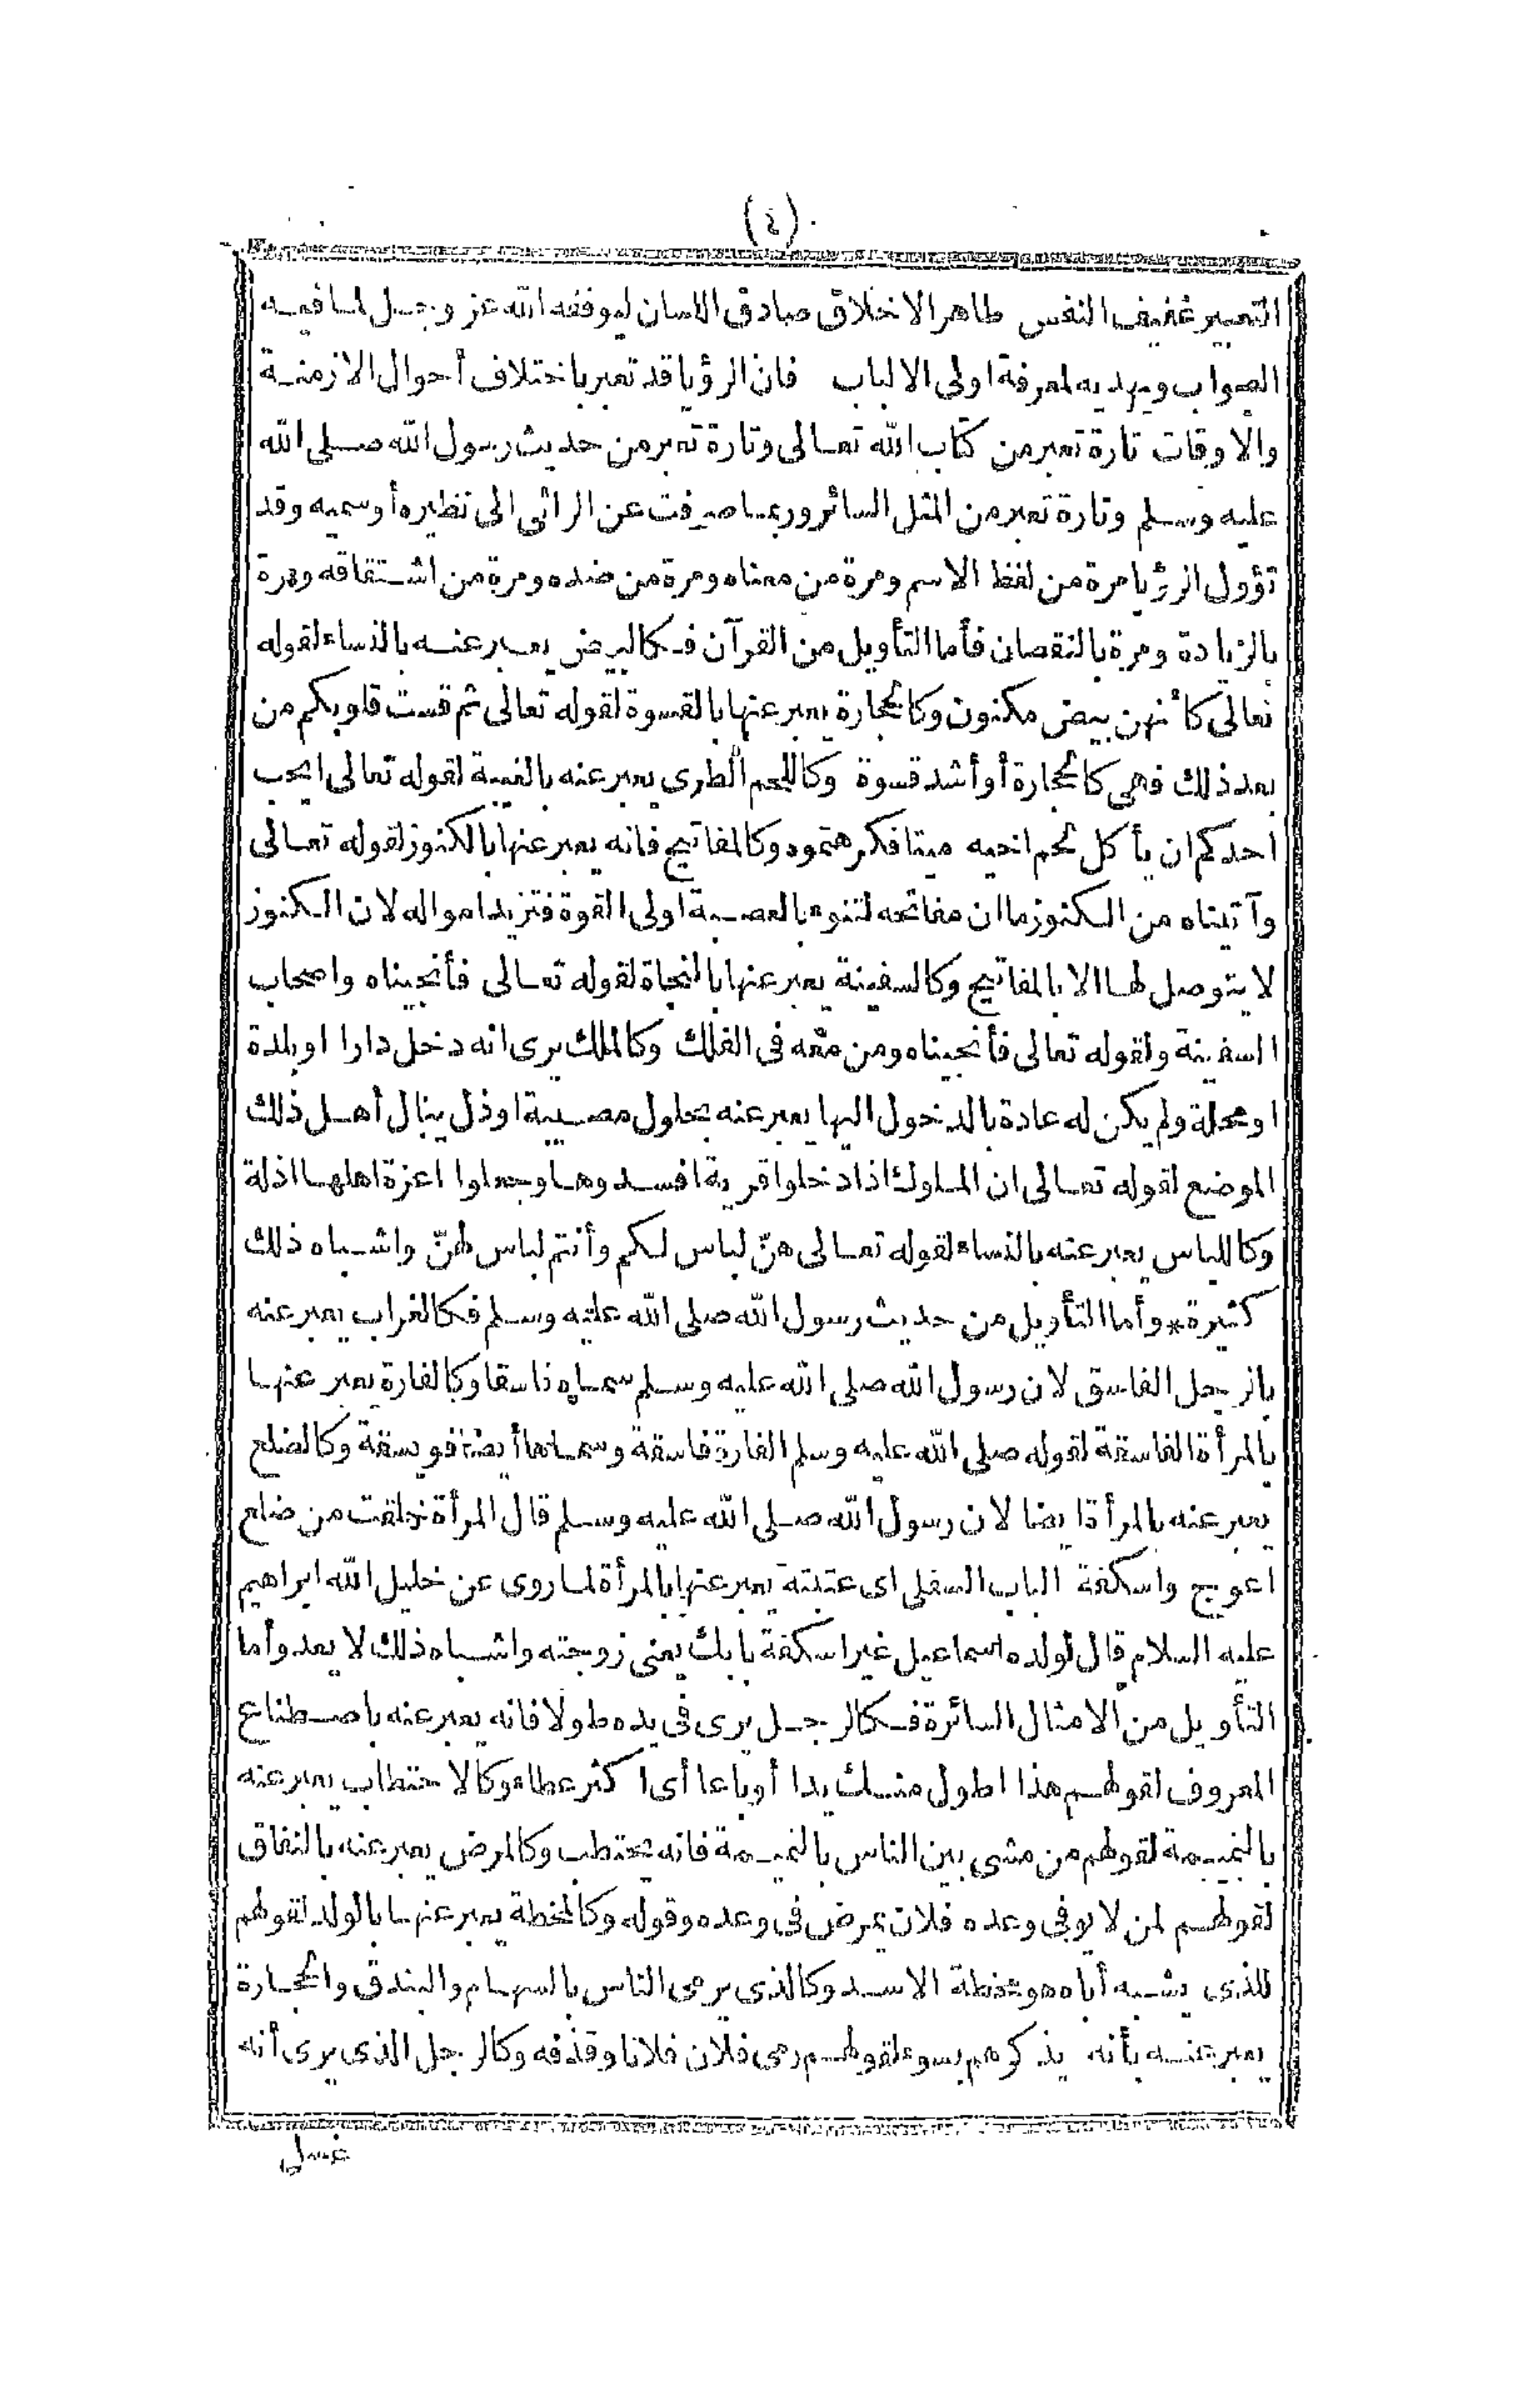 (٤)
التعبير عفيف النفس طاهر الاخلاق صادق اللسان ليوفقه الله عز وجل لما فيه
الصواب ويهديه لمعرفة اولى الالباب فان الرؤيا قد تعبر باختلاف أحوال الازمنة
والاوقات تارة تعبر من كتاب الله تعالى وتارة تعبر من حديث رسول الله صلى الله
عليه وسلم وتارة تعبر من المثل السائر وربما صرفت عن الرائى الى نظيره أو سميه وقد
تؤول الرؤيا مرة من لفظ الاسم ومرة من معناه ومرة من ضده ومرة من اشتقاقه ومرة
بالزيادة ومرة بالنقصان فأما التأويل من القرآن فكالبيض يعبر عنه بالنساء لقوله
تعالى كأنهن بيض مكنون وكالحجارة يعبر عنها بالقسوة لقوله تعالى ثم قست قلوبكم من
بعد ذلك فهى كالحجارة أو أشد قسوة وكاللحم الطرى يعبر عنه بالغيبة لقوله تعالى ايحب
احدكم ان يأكل لحم اخيه ميتا فكرهتموه وكالمفاتيح فانه يعبر عنها بالكنوز لقوله تعالى
وآتيناه من الكنوز ما ان مفاتحه لتنوء بالعصبة اولى القوة فتزيد امواله لان الكنوز
لا يتوصل لها الا بالمفاتيح وكالسفينة يعبر عنها بالنجاة لقوله تعالى فأنجيناه واصحاب
السفينة ولقوله تعالى فأنجيناه ومن معه فى الفلك وكالملك يرى انه دخل دارا او بلدة
او محلة ولم يكن له عادة بالدخول اليها يعبر عنه بحلول مصيبة او ذل ينال أهل ذلك
الموضع لقوله تعالى ان الملوك اذا دخلوا قرية افسدوها وجعلوا اعزة اهلها اذلة
وكاللباس يعبر عنه بالنساء لقوله تعالى هنّ لباس لكم وأنتم لباس لهنّ واشباه ذلك
كثيرة * وأما التأويل من حديث رسول الله صلى الله عليه وسلم فكالغراب يعبر عنه
بالرجل الفاسق لان رسول الله صلى الله عليه وسلم سماه فاسقا وكالفارة يعبر عنها
بالمرأة الفاسقة لقوله صلى الله عليه وسلم الفارة فاسقة وسماها أيضا فويسقة وكالضلع
يعبر عنه بالمرأة ايضا لان رسول الله صلى الله عليه وسلم قال المرأة خلقت من ضلع
اعوج واسكفة الباب السفلى اى عتبته يعبر عنها بالمرأة لما روى عن خليل الله ابراهيم
عليه السلام قال لولده اسماعيل غير اسكفة بابك يعنى زوجته واشباه ذلك لا يعد وأما
التأويل من الامثال السائرة فكالرجل يرى فى يده طولا فانه يعبر عنه باصطناع
المعروف لقولهم هذا اطول منك يدا أو باعا أى اكثر عطاء وكالاحتطاب يعبر عنه
بالنميمة لقولهم من مشى بين الناس بالنميمة فانه يحتطب وكالمرض يعبر عنه بالنفاق
لقولهم لمن لا يوفى وعده فلان يمرض فى وعده وقوله وكالمخطة يعبر عنها بالولد لقولهم
للذى يشبه أباه هو مخطة الاسد وكالذى يرمى الناس بالسهام والبندق والحجارة
يعبر عنه بأنه يذكرهم بسوء لقولهم رمى فلان فلانا وقذفه وكالرجل الذى يرى أنه
غسل